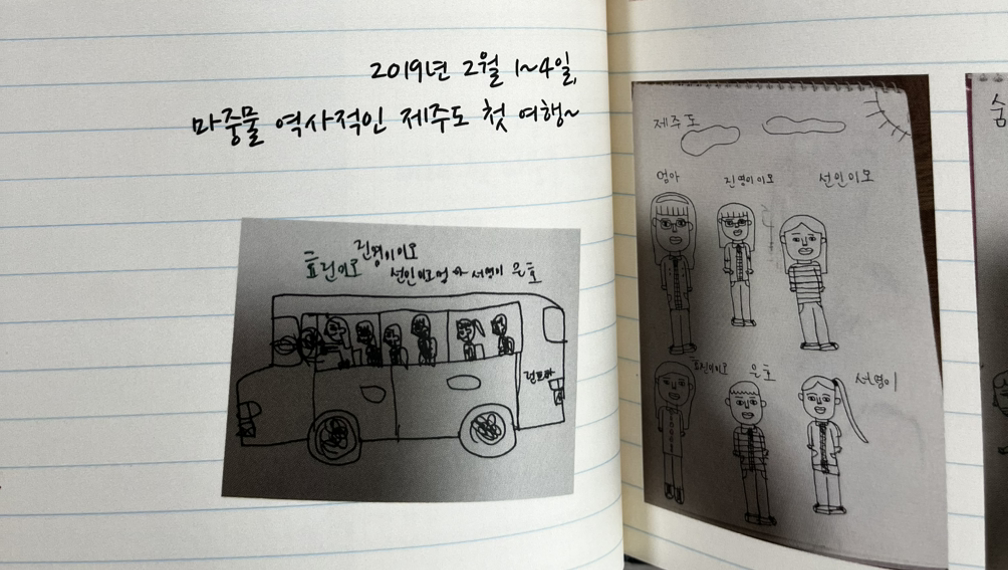 2019년 2월 1~4일,
마중물 역사적인 제주도 첫 여행~
효린이모 진영이이모
선인이모 엄마 서영이 은호
제주도
엄마 진영이이모 선인이모
효린이이모 은호 서영이
숨